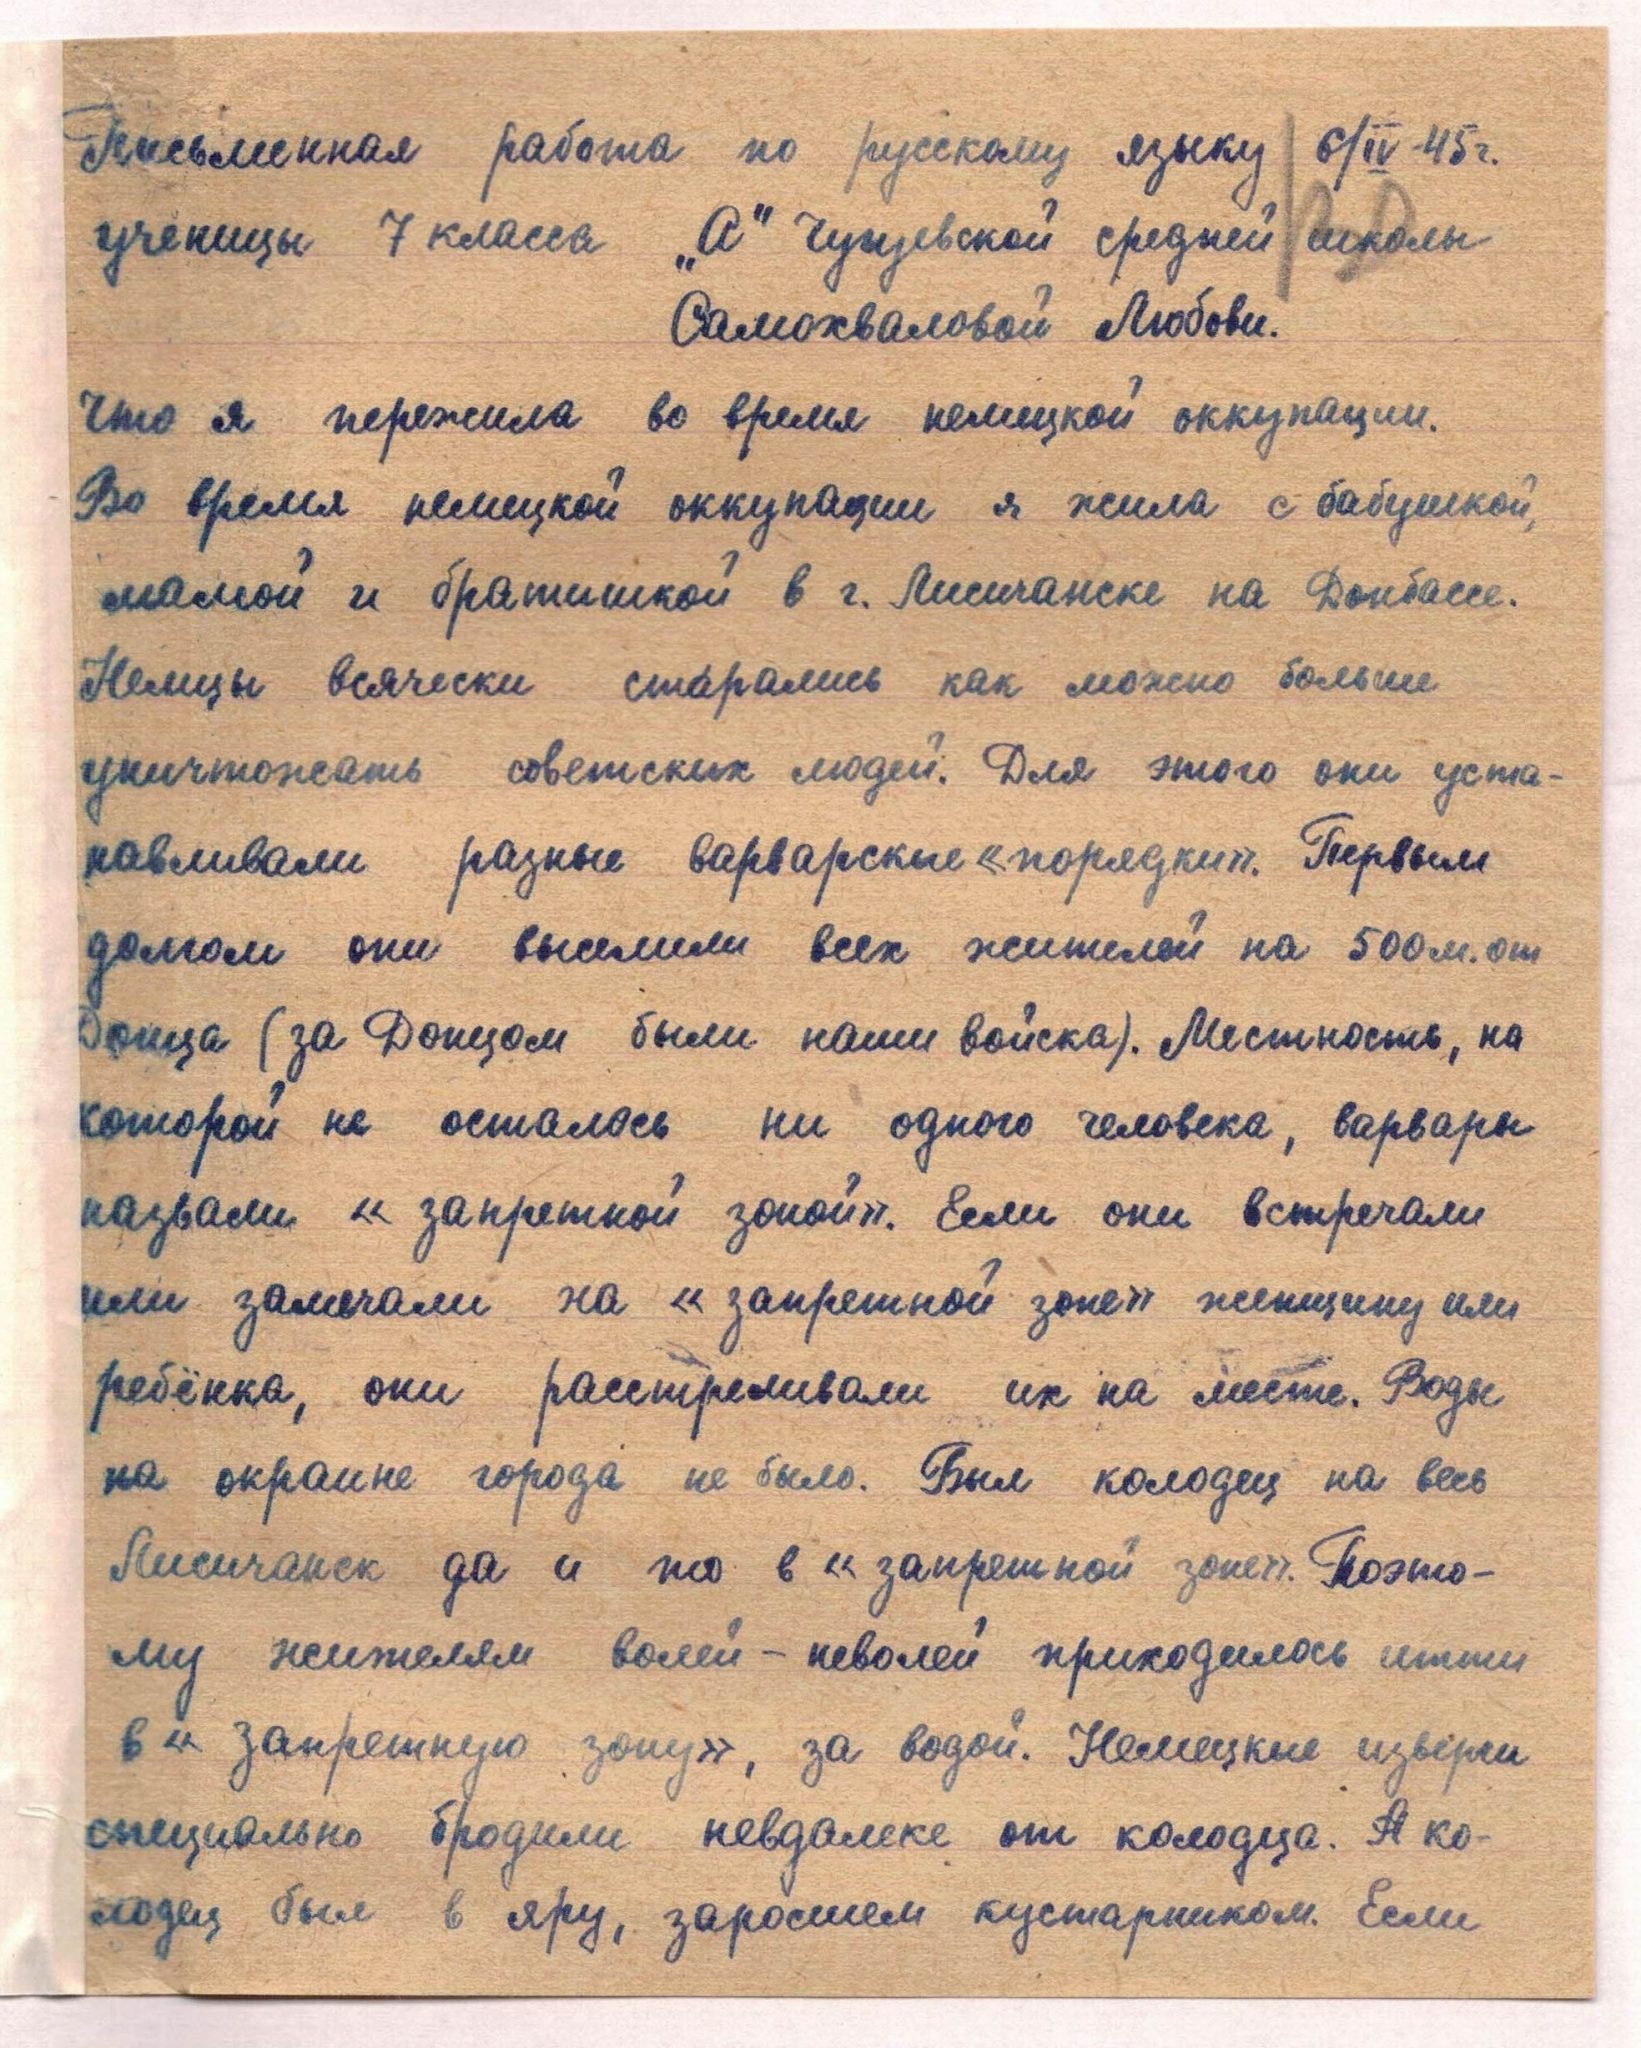 Письменная работа по русскому языку 6/IV-45г.
ученицы 7 класса „А" Чунževской средней школы
Самохваловой Любови.
Что я пережила во время немецкой оккупации.
Во время немецкой оккупации я жила с бабушкой,
мамой и братишкой в г. Лисичанске на Донбассе.
Немцы всячески старались как можно больше
уничтожать советских людей. Для этого они уста-
навливали разные варварские «порядки». Первым
долгом они выселили всех жителей на 500м. от
Донца (за Донцом были наши войска). Местность, на
которой не осталось ни одного человека, варвары
назвали « запретной зоной». Если они встречали
или замечали на « запретной зоне» женщину или
ребёнка, они расстреливали их на месте. Воды
на окраине города не было. Был колодец на весь
Лисичанск да и то в « запретной зоне». Поэто-
му жителям волей-неволей приходилось итти
в « запретную зону», за водой. Немецкие изверги
специально бродили невдалеке от колодца. А ко-
лодец был в яру, заросшем кустарником. Если